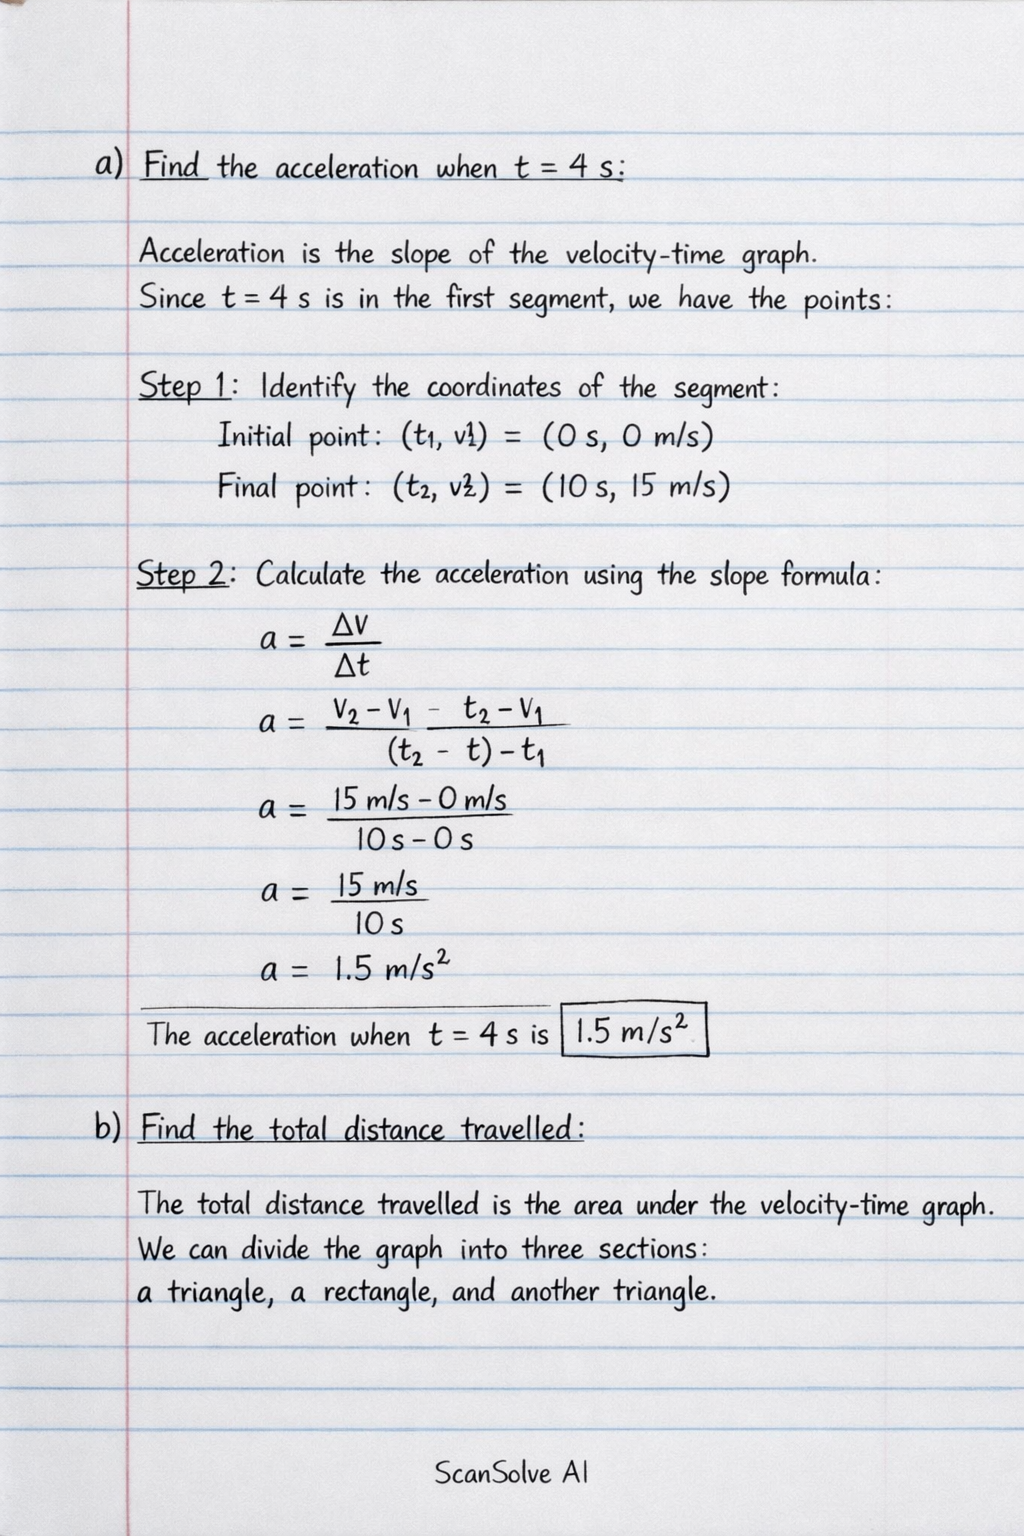 a) Find the acceleration when t = 4 s:
Acceleration is the slope of the velocity-time graph.
Since t = 4 s is in the first segment, we have the points:
Step 1: Identify the coordinates of the segment:
Initial point: (t₁, v1) = (0 s, 0 m/s)
Final point: (t₂, v2) = (10 s, 15 m/s)
Step 2: Calculate the acceleration using the slope formula:
a = ΔV
Δt
a = V₂ - V₁ - t₂ - V₁
(t₂ - t) - t₁
a = 15 m/s - 0 m/s
10 s - 0 s
a = 15 m/s
10 s
a = 1.5 m/s²
The acceleration when t = 4 s is 1.5 m/s²
b) Find the total distance travelled:
The total distance travelled is the area under the velocity-time graph.
We can divide the graph into three sections:
a triangle, a rectangle, and another triangle.
ScanSolve AI